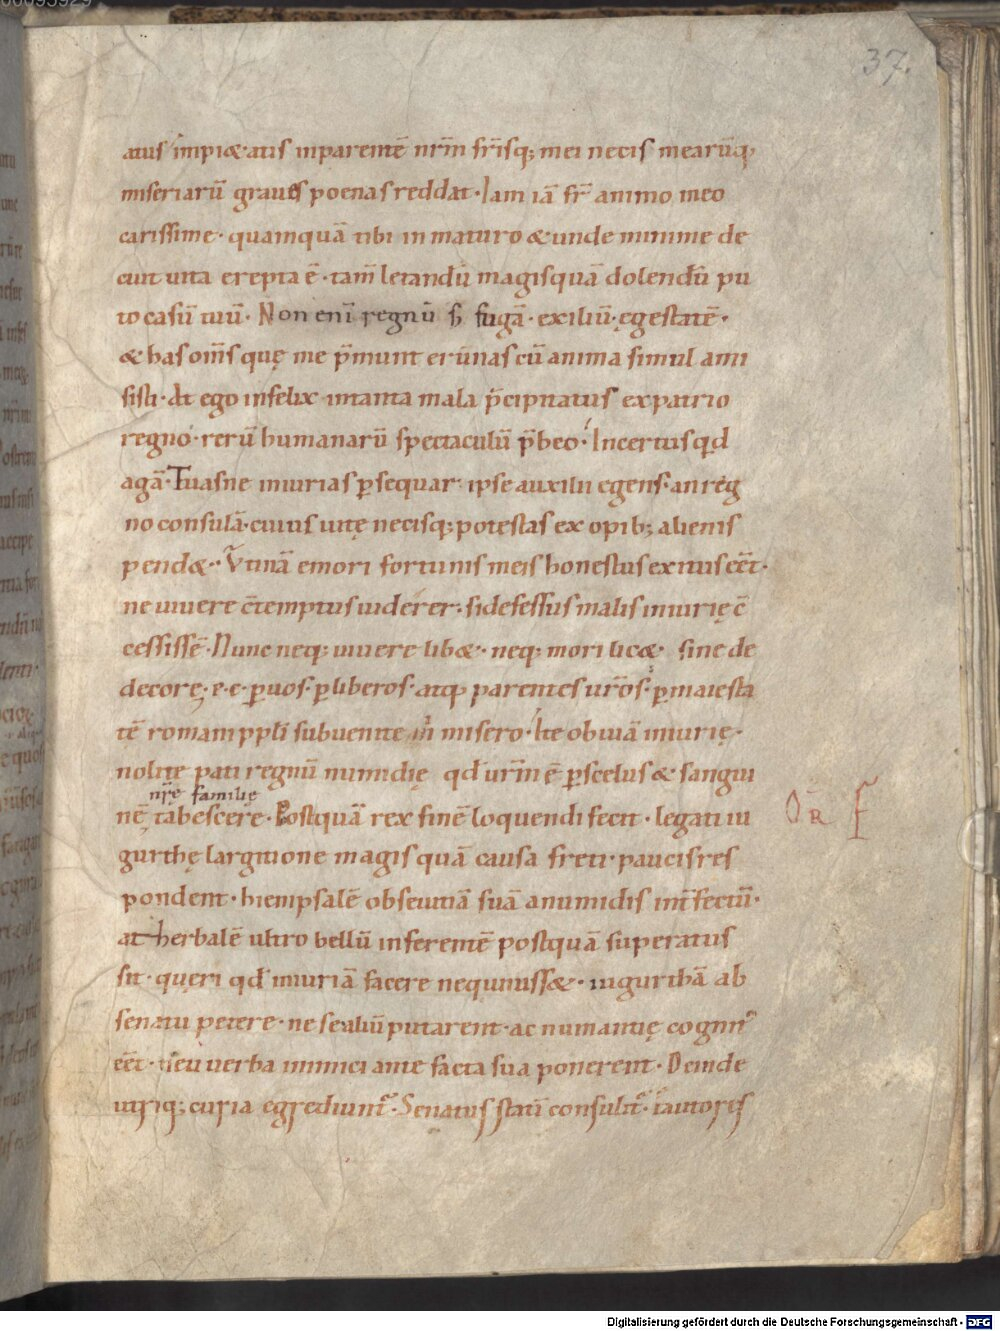 37.
atus impi&atis inparentē nr̄m fr̄isq; mei necis mearūq;
miseriarū graues poenas reddat · Iam iā fr̄ animo meo
carissime · quamquā tibi inmaturo & unde minime de
cuit uita erepta ē · tam̄ letandū magis quā dolendū pu
to casū tuū · Non enī regnū s; fugā · exiliū · egestatē ·
& has om̄s quę me p̄munt erūnas cū anima simul ami
sisti · At ego infelix intanta mala p̄cipitatus expatrio
regno · rerū humanarū spectaculū p̄beo · Incertus qd
agā · Tuasne iniurias psequar ipse auxilii egens · an reg
no consulā · cuius uitę necisq; potestas ex opib; alienis
pend& · Vtinā emori fortunis meis honestus exitus eēt ·
ne uiuere c̄temptus uiderer · si defessus malis iniurię c̄
cessissē · Nunc neq; uiuere lib& · neq; mori lic& sine de
decore · p · c · p uos · p liberos · atq; parentes ur̄os · p maiesta
tē romani pp̄li subuenite m̄ misero · Ite obuiā iniurię ·
nolite pati regnū numidię qd ur̄m ē p scelus & sangui
nr̄ę familię
nē tabescere · Postquā rex finē loquendi fecit · legati iu
OR̄ F
gurthę largitione magis quā causa freti · paucis res
pondent · hiempsalē ob seuitiā suā a numidis int̄fectū ·
atherbalē ultro bellū inferentē postquā superatus
sit · queri qd iniuriā facere nequiuiss& · iugurthā ab
senatu petere · ne se aliū putarent · ac numantię cognit᷒
eēt · neu uerba inimici ante facta sua ponerent · Deinde
utriq; curia egrediunt᷒ · Senatus statī consulit᷒ · fautores
Digitalisierung gefördert durch die Deutsche Forschungsgemeinschaft - DFG